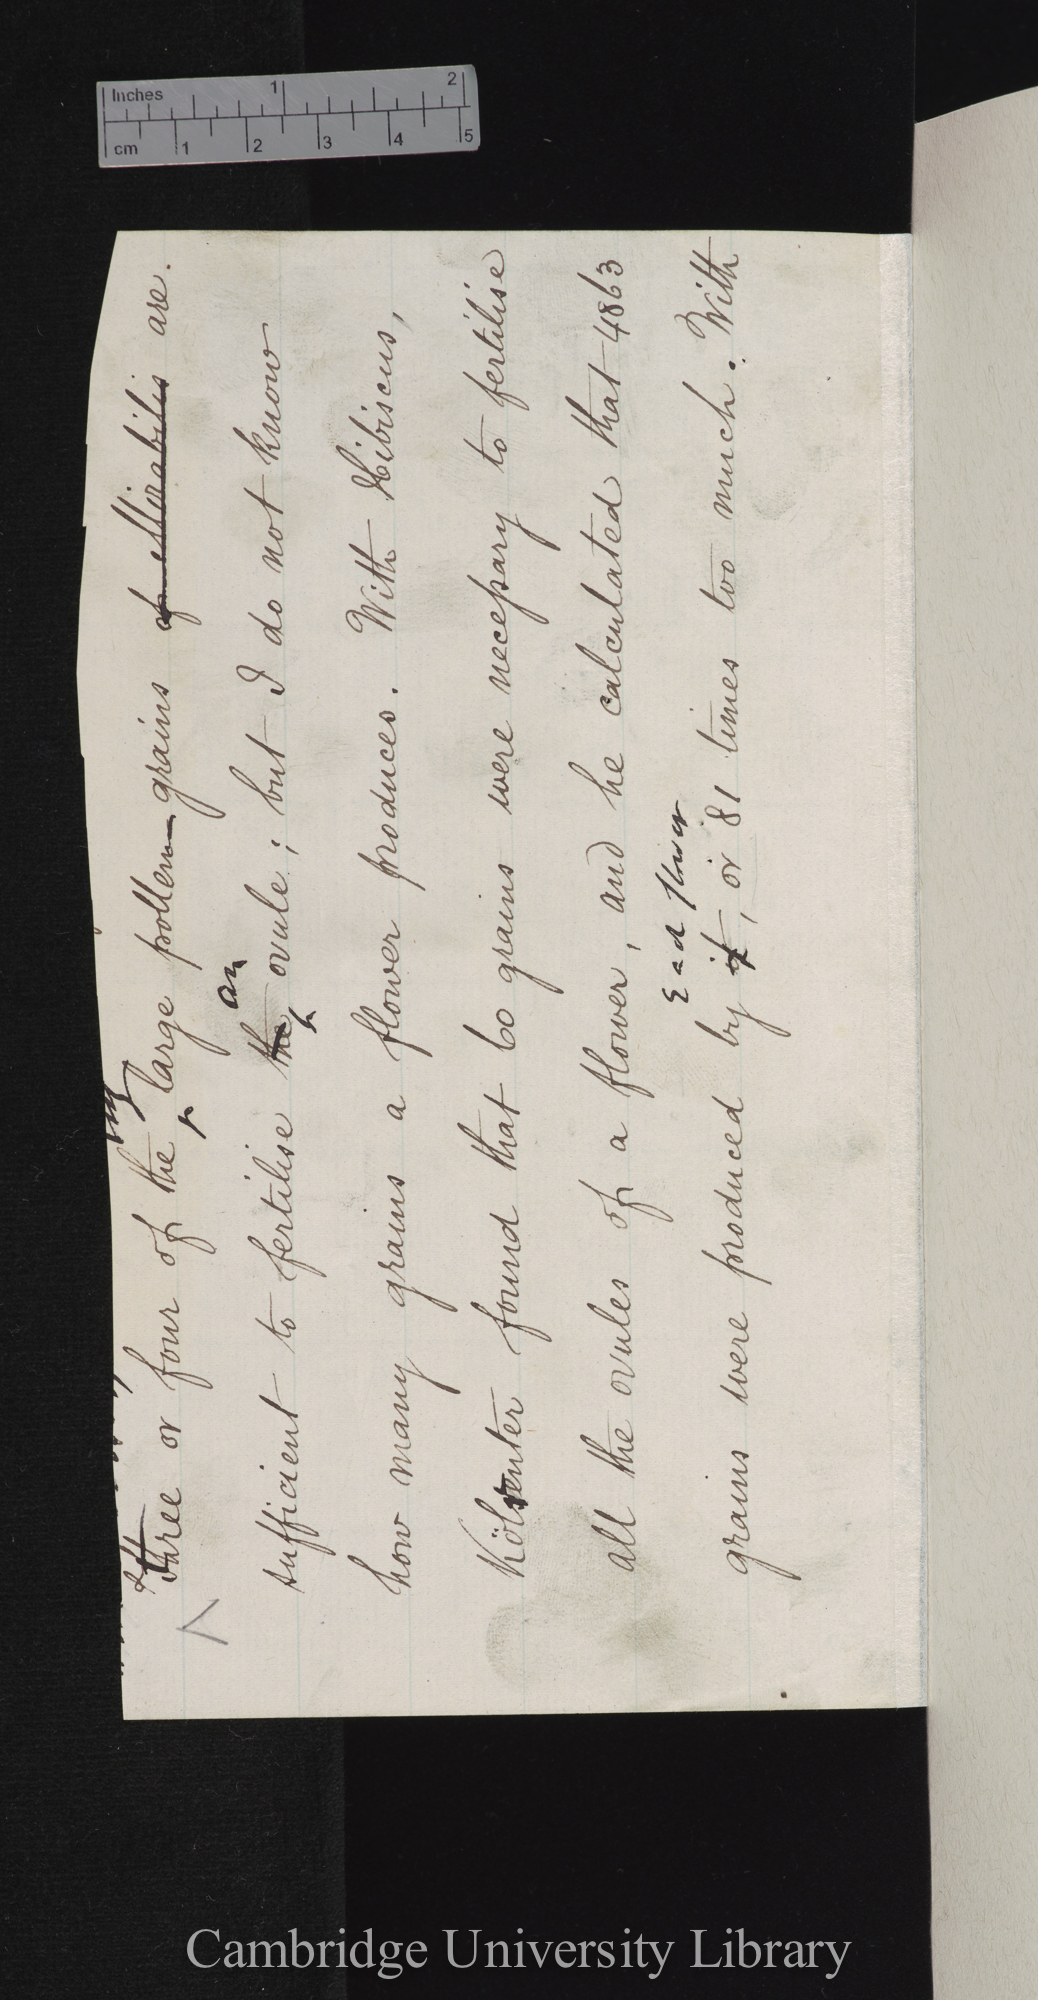 Inches 1 2
cm 1 2 3 4 5
three or four of the large pollen-grains of Mirabilis are.
an
sufficient to fertilise the ovule; but I do not know
how many grains a flower produces. With Hibiscus,
Kölreuter found that 60 grains were necessary to fertilise
all the ovules of a flower, and he calculated that 4863
Each flower
grains were produced by it, or 81 times too much. With
Cambridge University Library